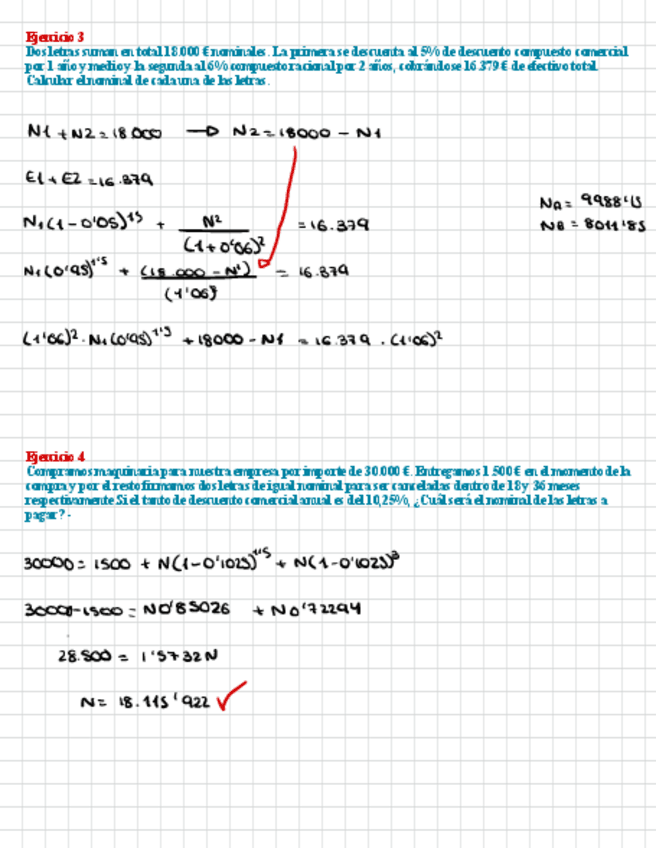 Ejercicio 3
Dos letras suman en total 18.000 € nominales. La primera se descuenta al 5% de descuento compuesto comercial
por 1 año y medio y la segunda al 6% compuesto racional por 2 años, cobrándose 16.379 € de efectivo total.
Calcular el nominal de cada una de las letras.
N1 + N2 = 18.000 → N2 = 18000 - N1
E1 + E2 = 16.379
NA = 9988'15
N1 (1 - 0'05)^1'5 + N2 / (1 + 0'06)^2 = 16.379
NB = 8011'85
N1 (0'95)^1'5 + (18.000 - N1) / (1'06)^2 = 16.379
(1'06)^2 · N1 (0'95)^1'5 + 18000 - N1 = 16.379 · (1'06)^2
Ejercicio 4
Compramos maquinaria para nuestra empresa por importe de 30.000 €. Entregamos 1.500 € en el momento de la
compra y por el resto firmamos dos letras de igual nominal para ser canceladas dentro de 18 y 36 meses
respectivamente. Si el tanto de descuento comercial anual es del 10,25%, ¿Cuál será el nominal de las letras a
pagar? -
30000 = 1500 + N(1 - 0'1025)^1'5 + N(1 - 0'1025)^3
30000 - 1500 = N0'85026 + N0'72294
28.500 = 1'5732N
N = 18.115'922 ✓